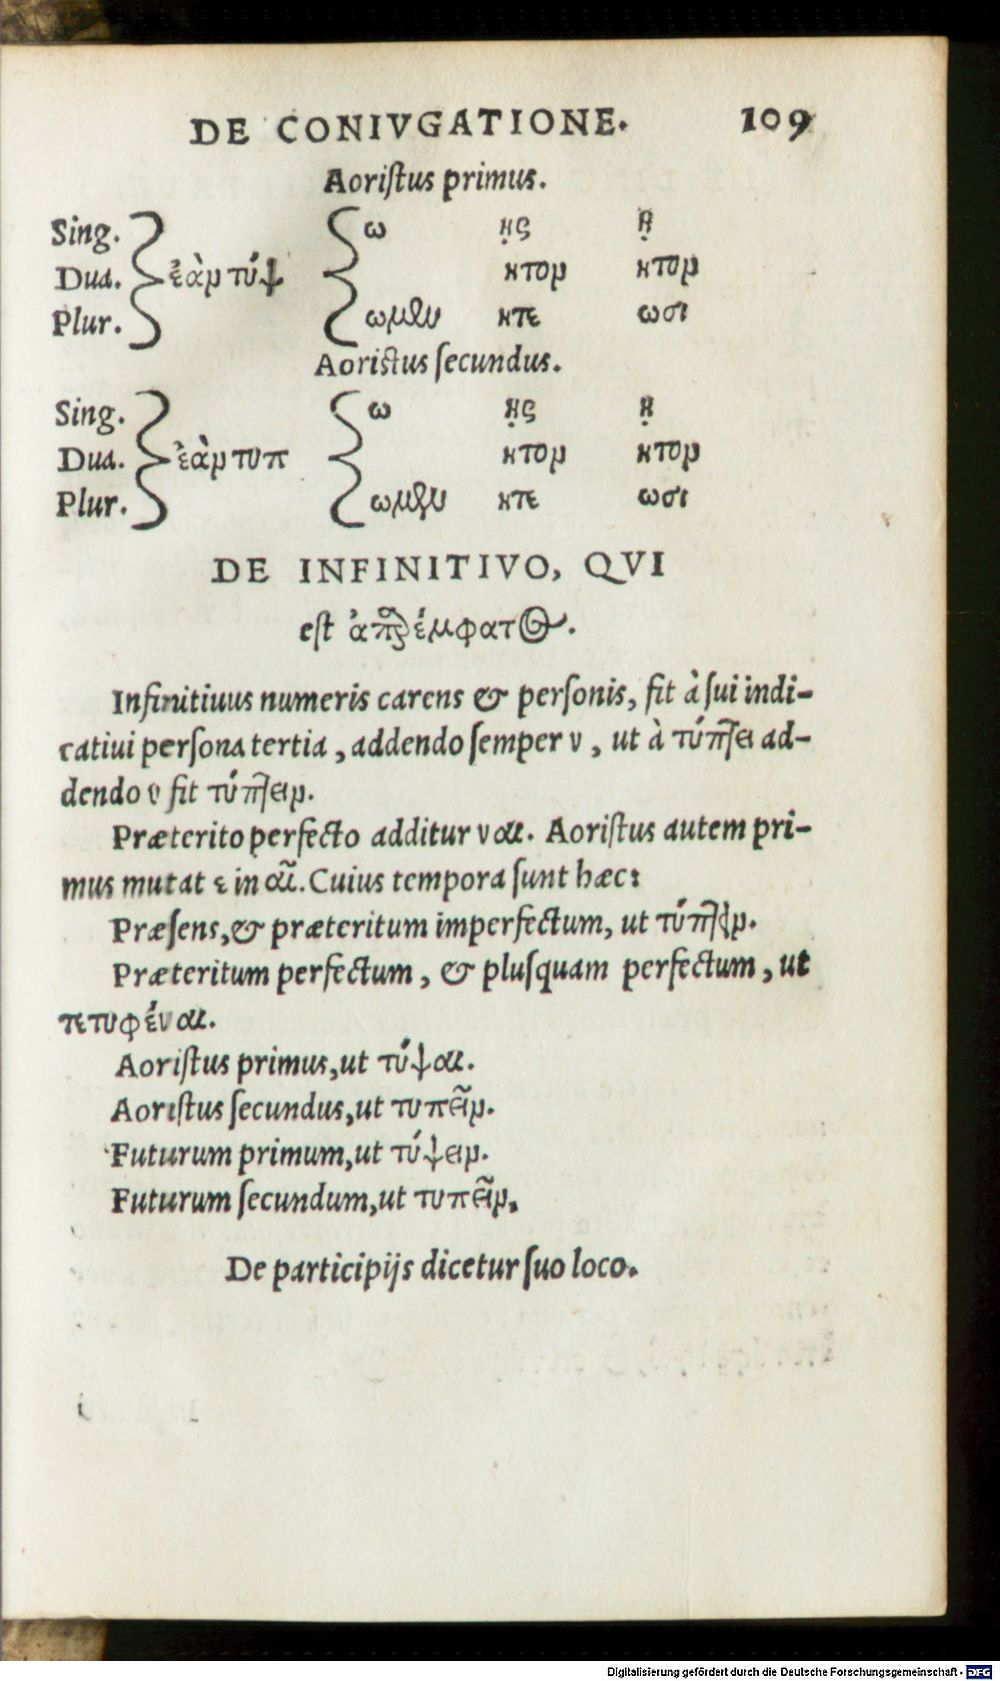 DE CONIVGATIONE. 109
Aoriſtus primus.
Sing. ω ῃς ῃ
Dua. ἐὰν τύψ ητον ητον
Plur. ωμεν ητε ωσι
Aoristus ſecundus.
Sing. ω ῃς ῃ
Dua. ἐὰν τυπ ητον ητον
Plur. ωμεν ητε ωσι
DE INFINITIVO, QVI
est ἀπαρέμφατος.
Infinitiuus numeris carens & perſonis, fit à ſui indi-
catiui perſona tertia, addendo ſemper ν, ut à τύπτει ad-
dendo ν fit τύπτειν.
Præterito perfecto additur ναι. Aoriſtus autem pri-
mus mutat ε in αι. Cuius tempora ſunt hæc:
Præſens, & præteritum imperfectum, ut τύπτειν.
Præteritum perfectum, & pluſquam perfectum, ut
τετυφέναι.
Aoriſtus primus, ut τύψαι.
Aoriſtus ſecundus, ut τυπεῖν.
Futurum primum, ut τύψειν.
Futurum ſecundum, ut τυπεῖν.
De participijs dicetur ſuo loco.
Digitalisierung gefördert durch die Deutsche Forschungsgemeinschaft - DFG